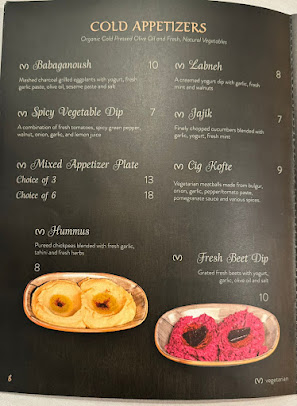 COLD APPETIZERS
Organic Cold Pressed Olive Oil and Fresh, Natural Vegetables
(V) Babaganoush 10
Meshed charcoal grilled eggplants with yogurt, fresh
garlic paste, olive oil, sesame paste and salt
(V) Spicy Vegetable Dip 7
A combination of fresh tomatoes, spicy green pepper,
walnut, onion, garlic, and lemon juice
(V) Mixed Appetizer Plate
Choice of 3 13
Choice of 6 18
(V) Hummus
Pureed chickpeas blended with fresh garlic,
tahini and fresh herbs
8
(V) Labneh 8
A creamed yogurt dip with garlic, fresh
mint and walnuts
(V) Jajik 7
Finely chopped cucumbers blended with
garlic, yogurt, fresh mint
(V) Cig Kofte 9
Vegetarian meatballs made from bulgur,
onion, garlic, pepper/tomato paste,
pomegranate sauce and various spices.
(V) Fresh Beet Dip
Grated fresh beets with yogurt,
garlic, olive oil and salt
10
(V) vegetarian